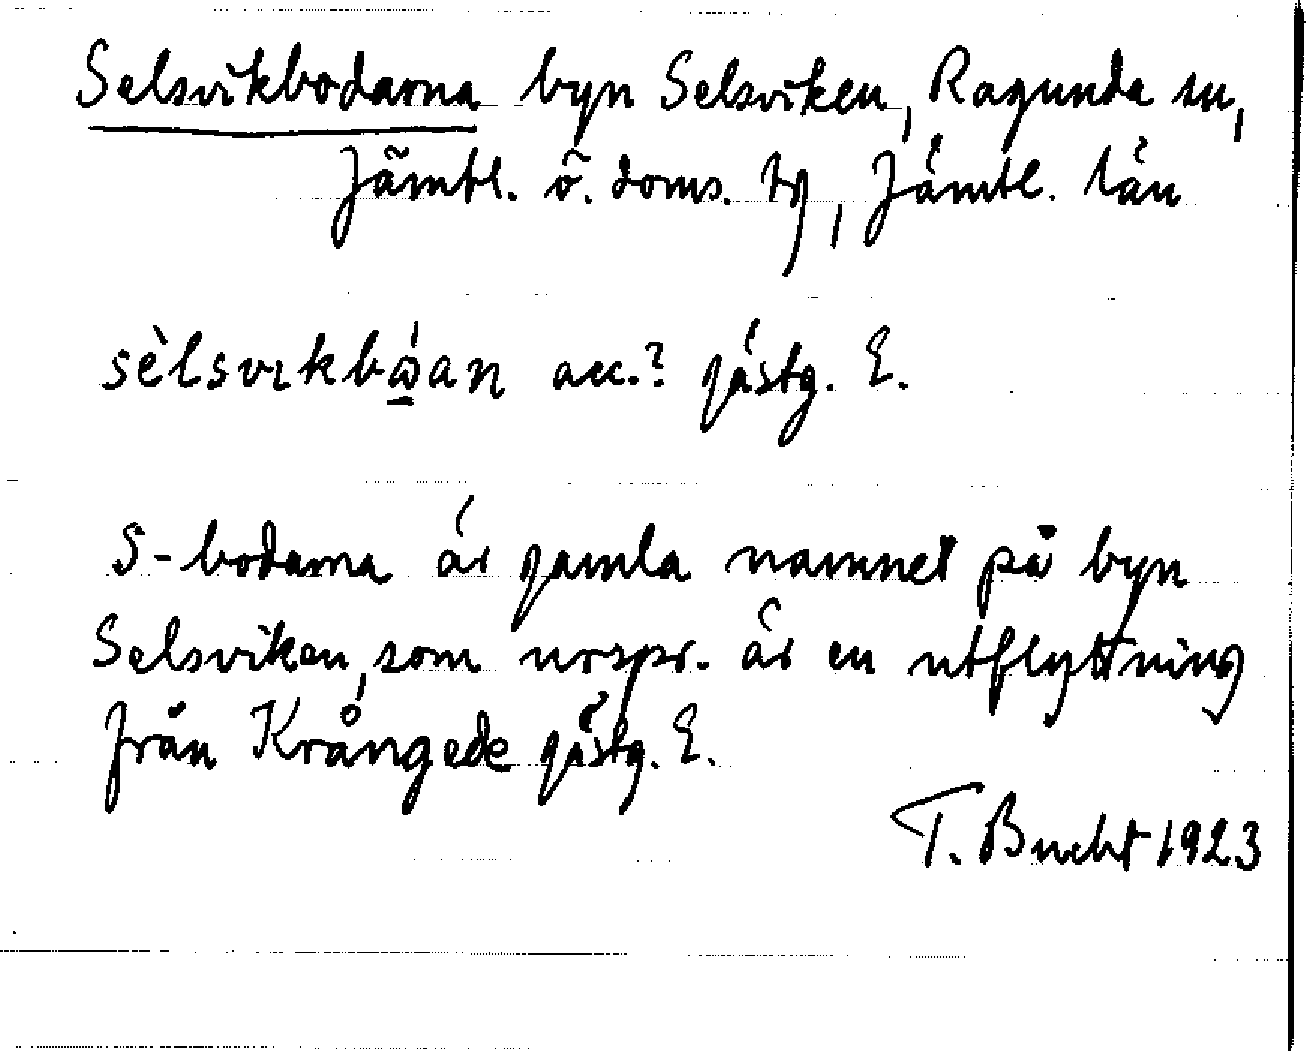 Selsvikbodarna byn Selsviken, Ragunda sn,
Jämtl. ö. doms. tg, Jämtl. län
sèlsvɩkbώ̲an acc.? gästg. E.
S-bodarna är gamla namnet på byn
Selsviken, som urspr. är en utflyttning
från Krångede gästg. E.
T. Bucht 1923